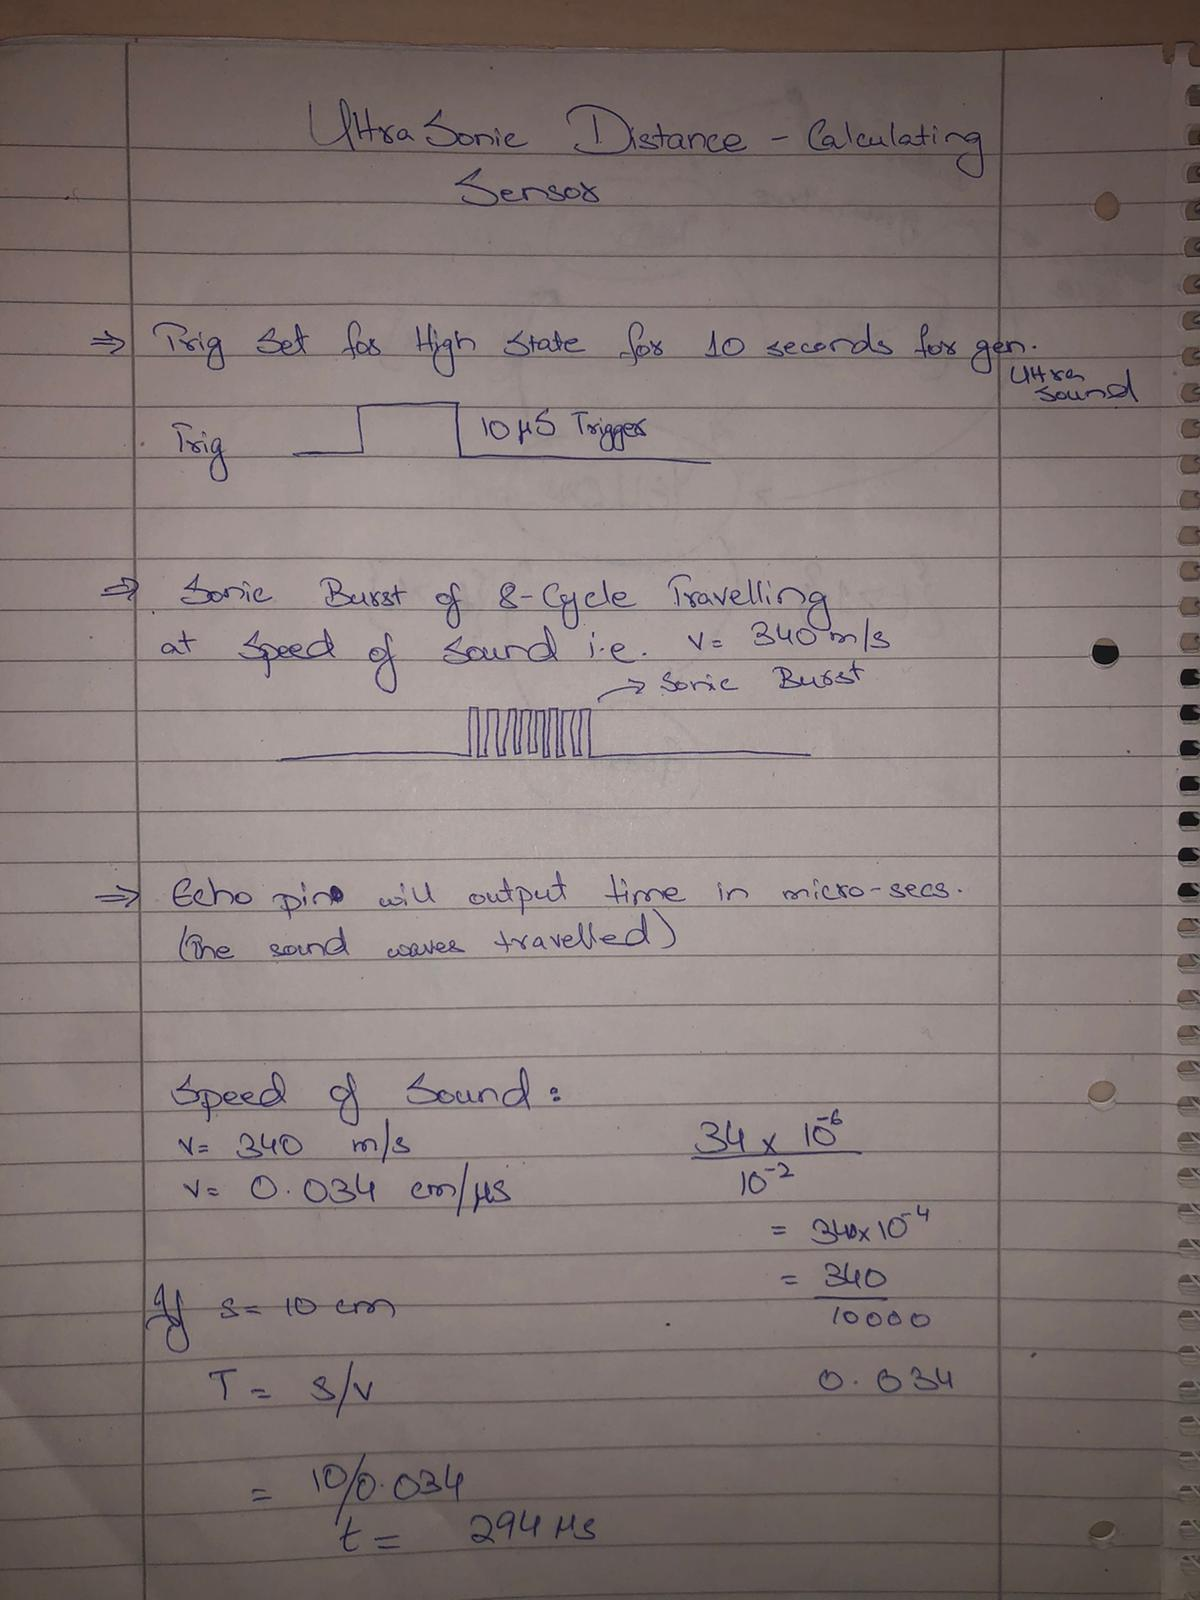 UltraSonic Distance - Calculating
Sensor
⇒ Trig Set for High State for 10 seconds for gen.
Ultra
Sound
Trig
10 μS Trigger
⇒ Sonic Burst of 8-Cycle Travelling
at Speed of Sound i.e. v= 340 m/s
→ Sonic Burst
⇒ Echo pin will output time in micro-secs.
(The sound waves travelled)
Speed of Sound:
v= 340 m/s
v= 0.034 cm/μs
34 x 10^-6
10^-2
= 340x10^-4
= 340
10000
0.034
If s= 10 cm
T = s/v
= 10/0.034
t = 294 μs